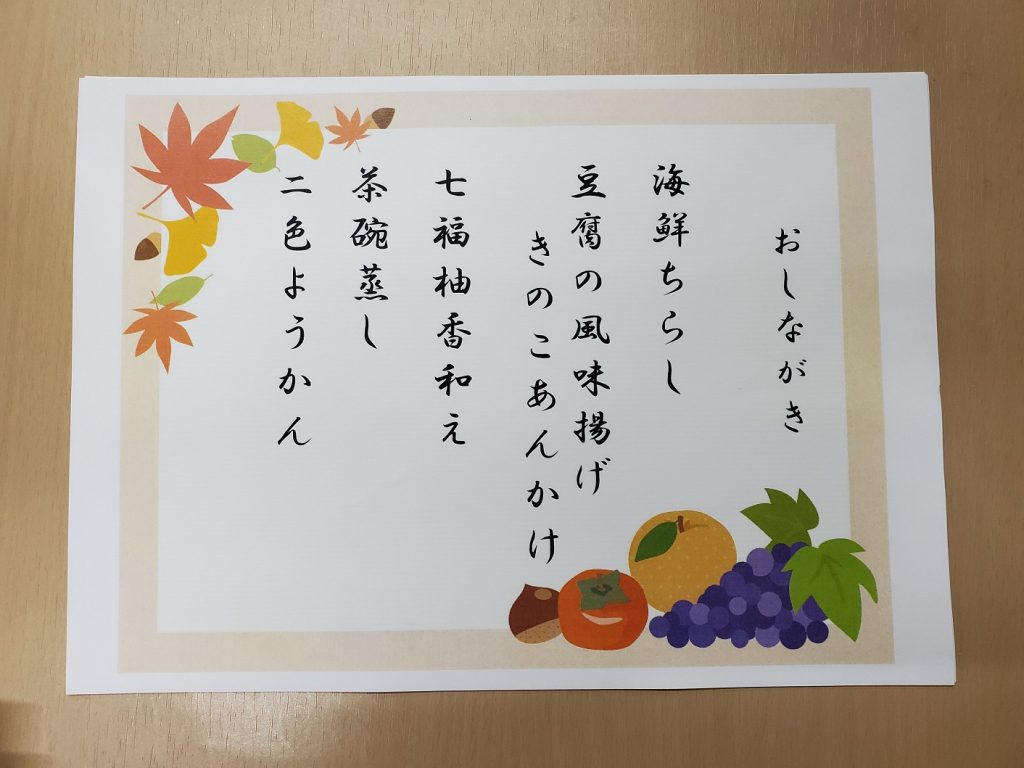 おしながき
海鮮ちらし
豆腐の風味揚げ
きのこあんかけ
七福柚香和え
茶碗蒸し
二色ようかん